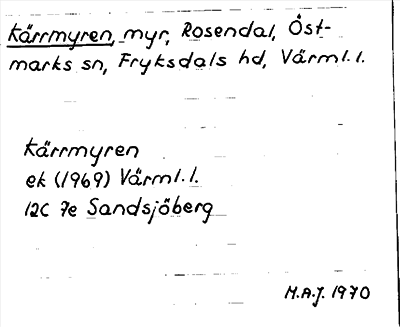 Kärrmyren, myr, Rosendal, Öst-
marks sn, Fryksdals hd, Värml.l.
Kärrmyren
ek (1969) Värml.l.
12C 7e Sandsjöberg
M.A.J. 1970